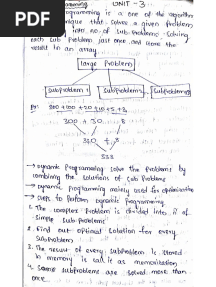 Programming UNIT - 3
programming is a one of the algorithm
technique that solves a given problem
into no. of sub problems. Solving
each sub problem just once and store the
result in an array
Large Problem
SubProblem 1 SubProblem SubProblem
Ex: 200+100+20+10+5+3
300 + 30 8
330 + 8
338
→ Dynamic Programming solve the problems by
combining the solutions of sub problem
→ Dynamic programming mainly used for optimization
→ steps to Perform dynamic programming
1. The complex Problem is divided into no. of
simple sub problems
2. Find out optimal solution for every
subproblem
3. The result of every subproblem is stored
in memory is call it as memoization
4. Same subproblems are solved more than
once